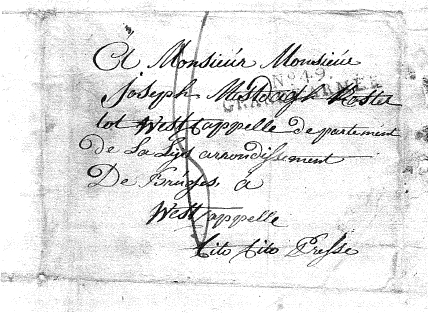 A Monsieur Monsieur
No. 49.
GRANDE ARMÉE
Joseph Mestdagh Koster
tot WestCappelle departement
de La Lys arrondissement
De Bruges à
WestCappelle
Cito Cito Presse